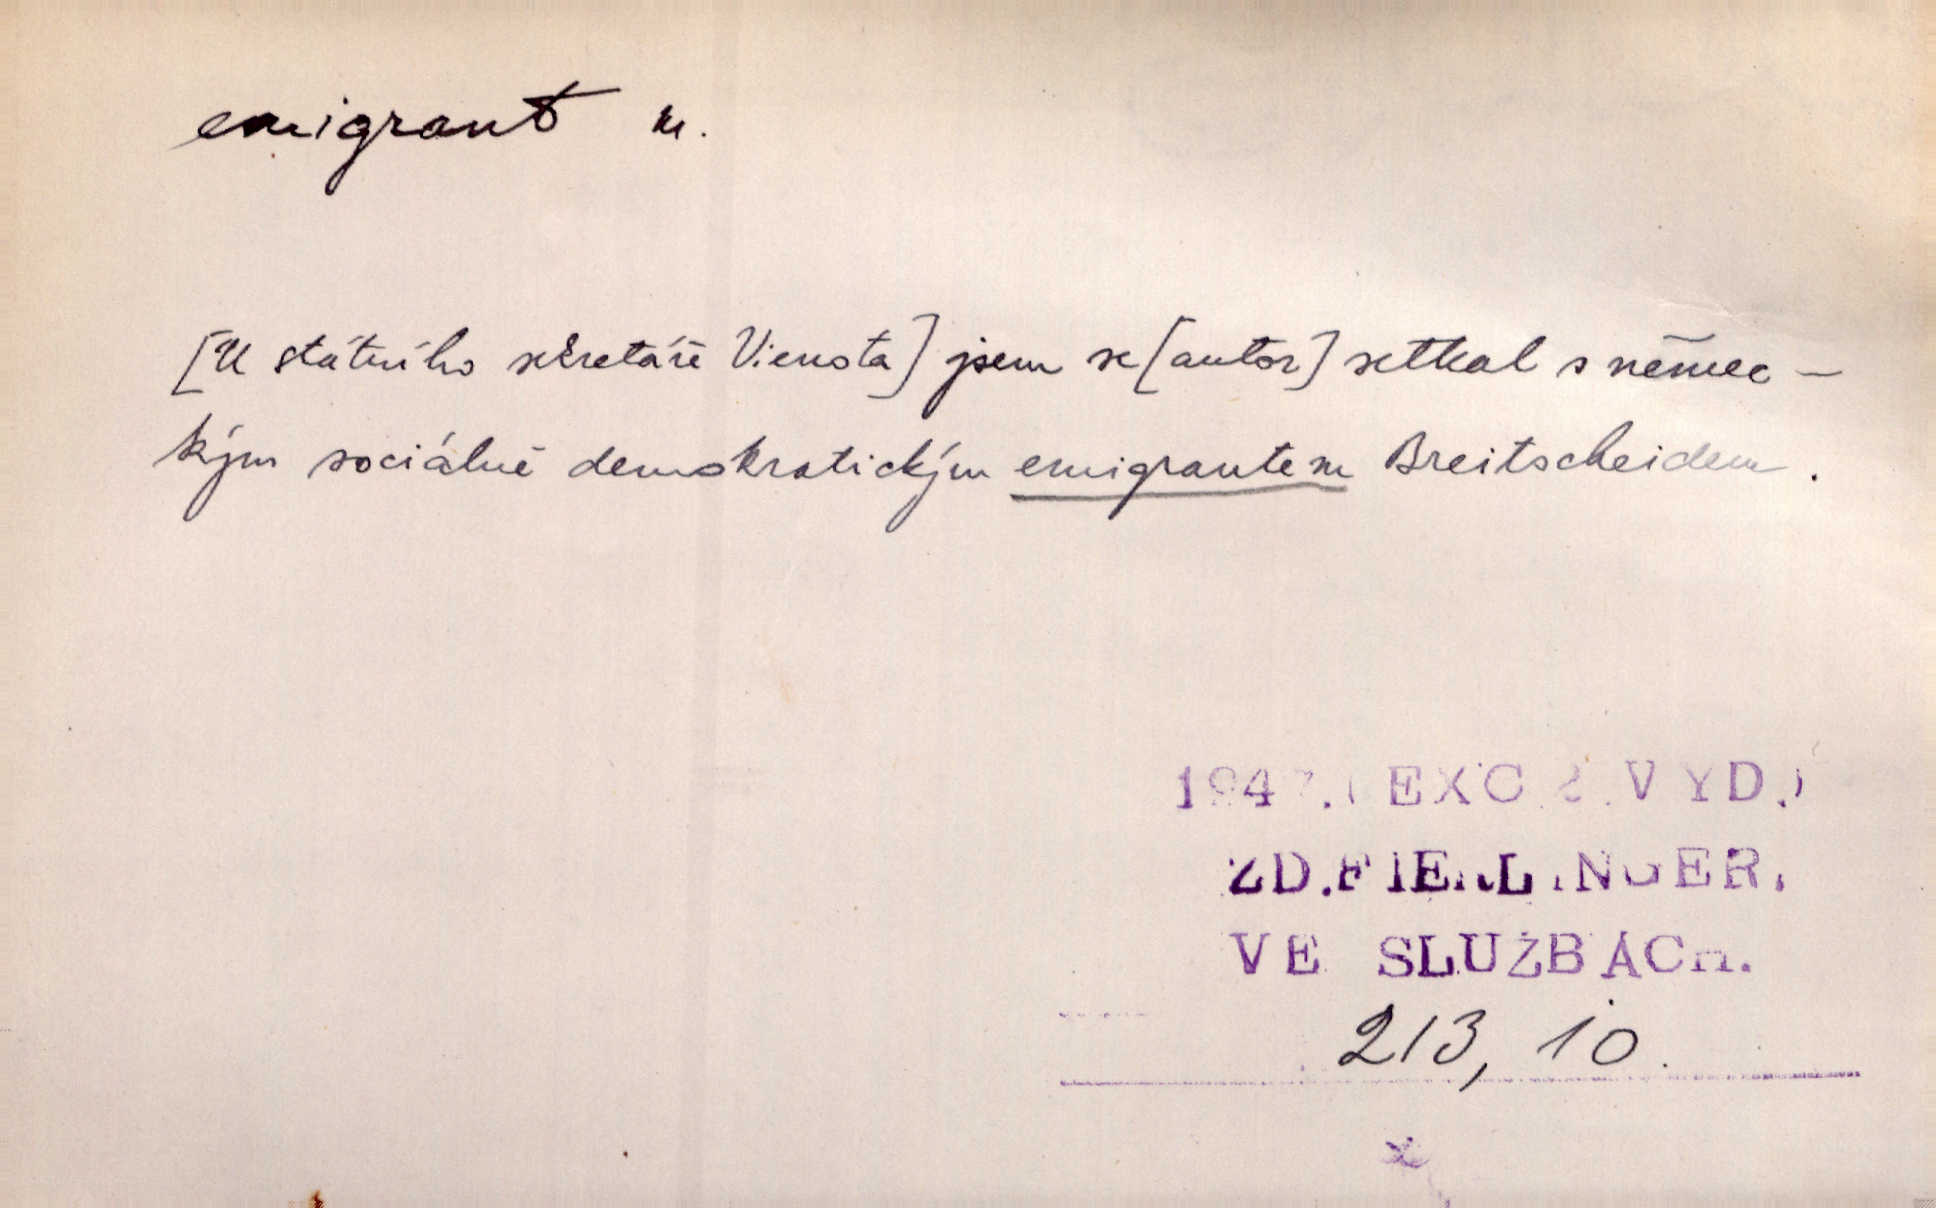 emigrant m.
[U státního sekretáře Vienota] jsem se [autor] setkal s němec-
kým sociálně demokratickým emigrantem Breitscheidem.
1947. (EXC. 2. VYD.)
ZD. FIERLINGER,
VE SLUŽBÁCH.
213, 10.